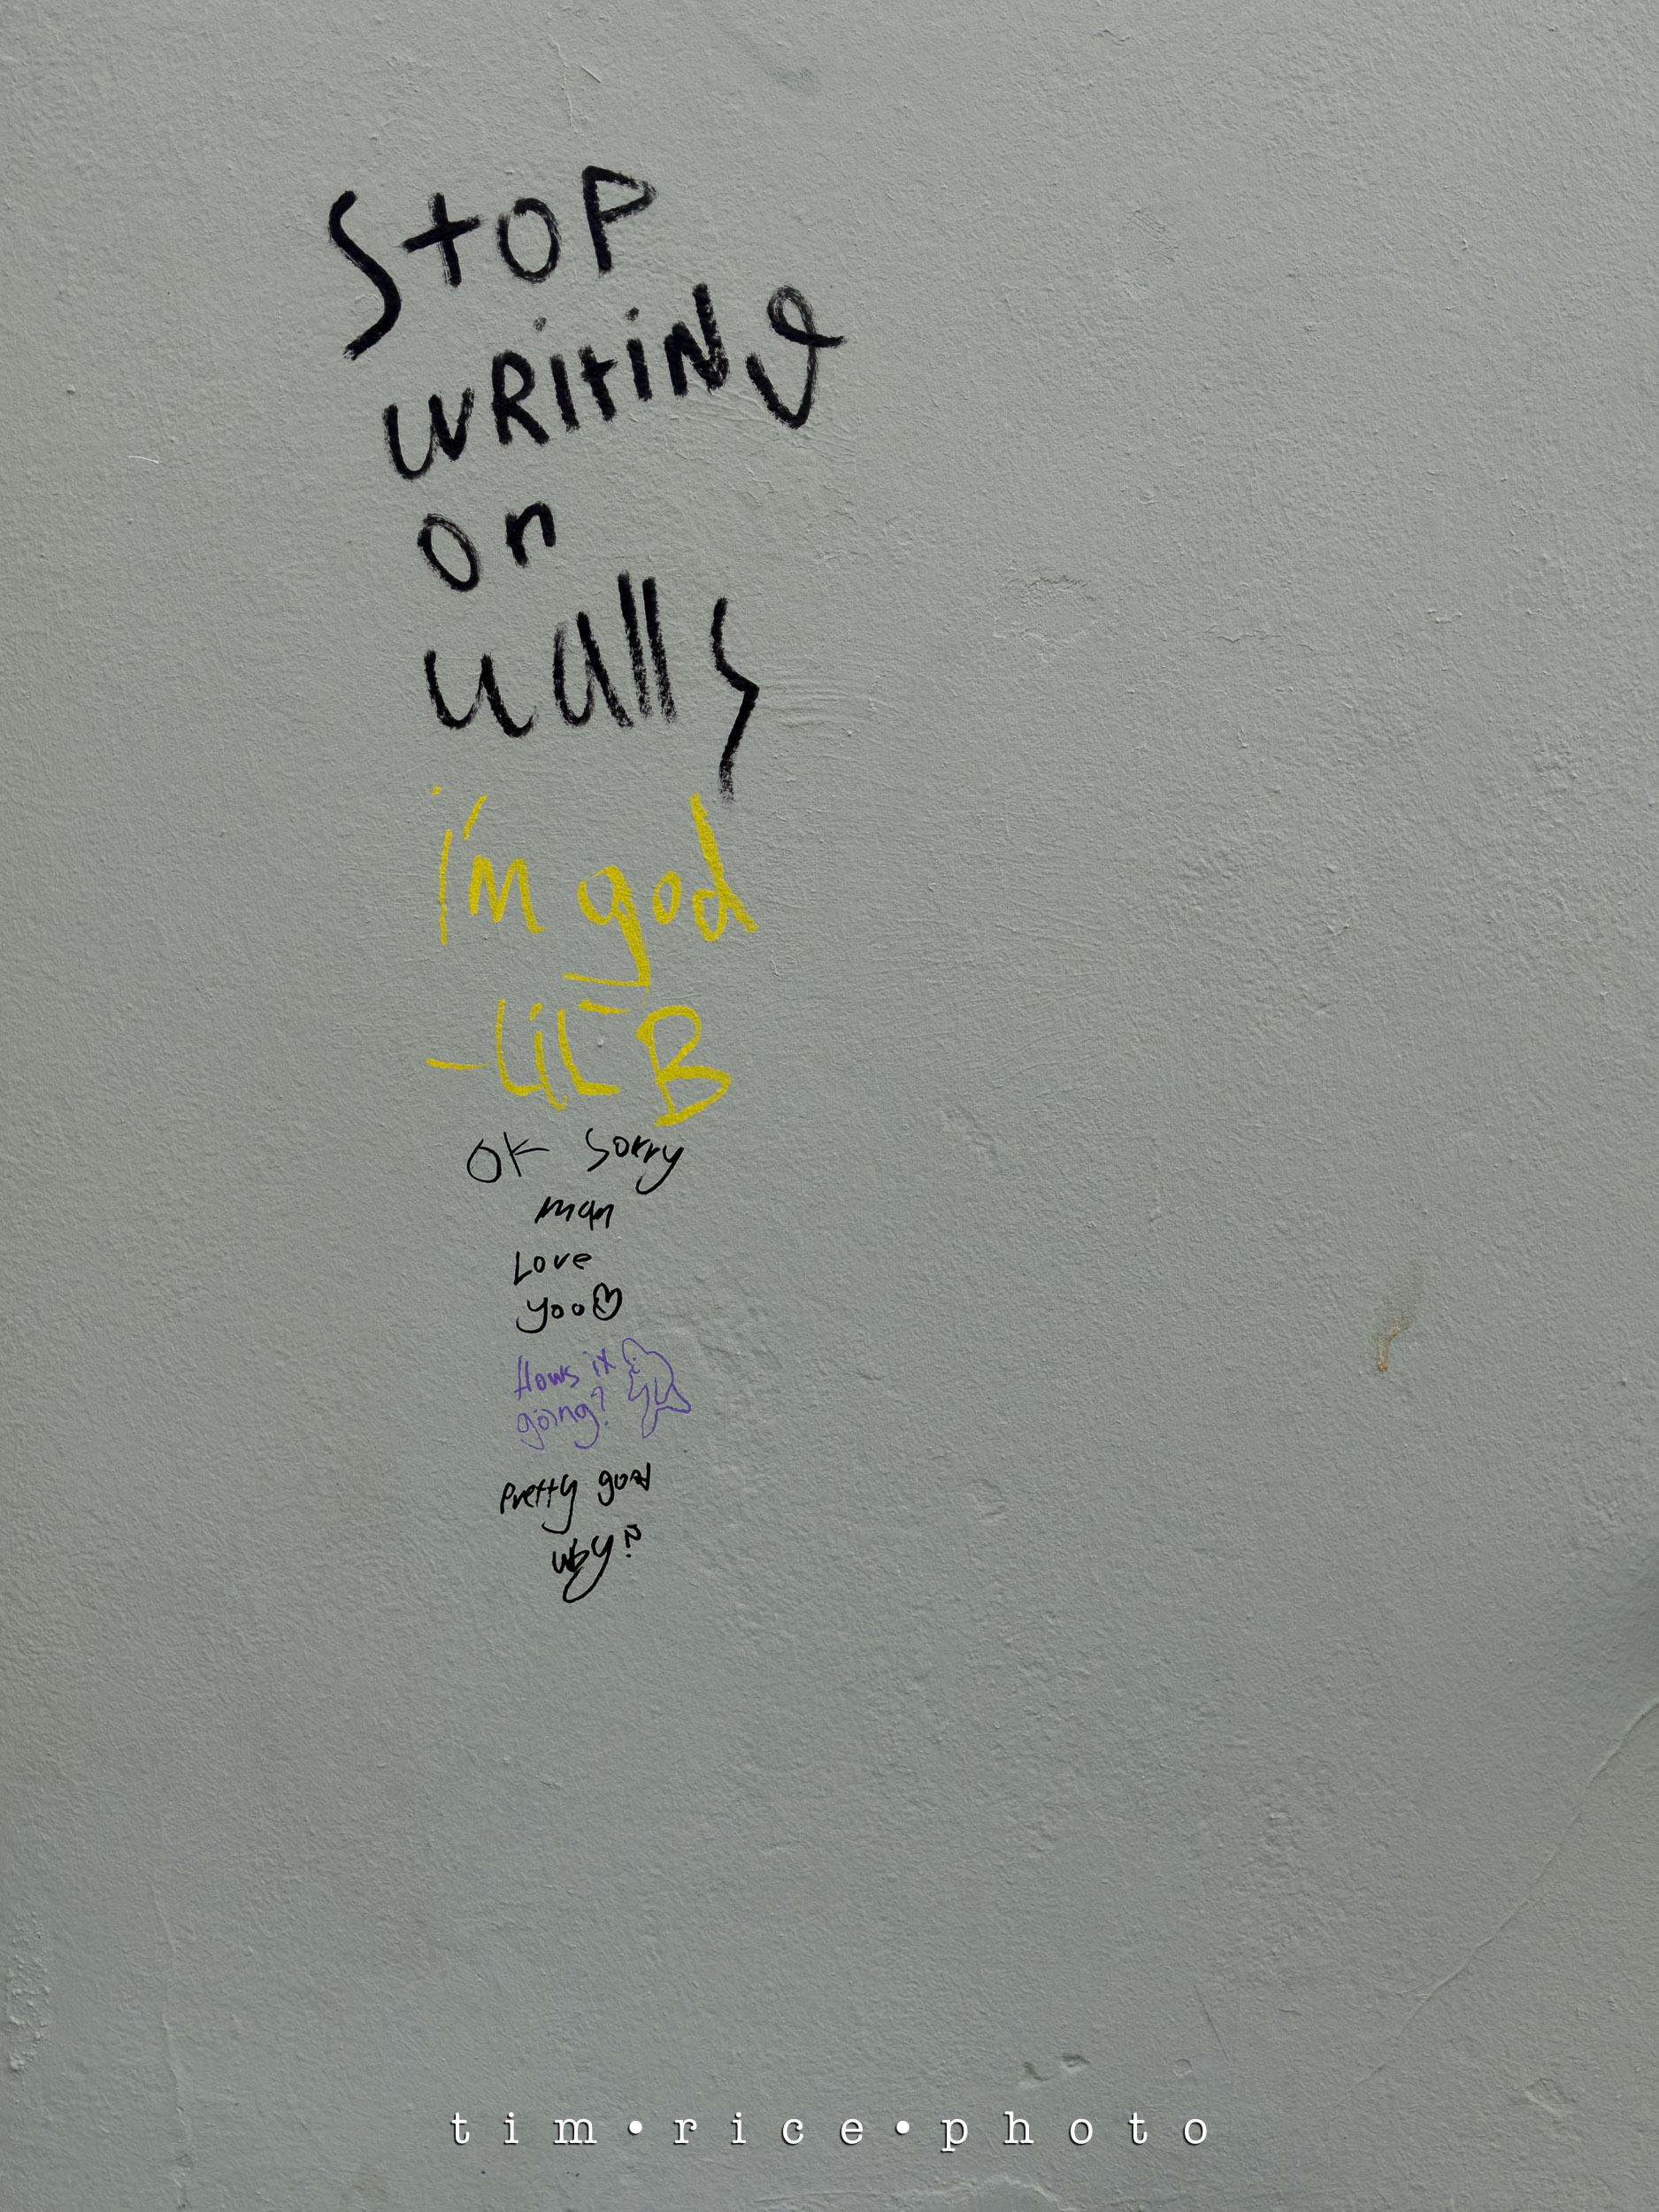 StOP
WRItiNg
on
walls
i'm god
-LiL B
OK sorry
man
Love
yoo
Hows it
going?
Pretty good
wby?
tim•rice•photo